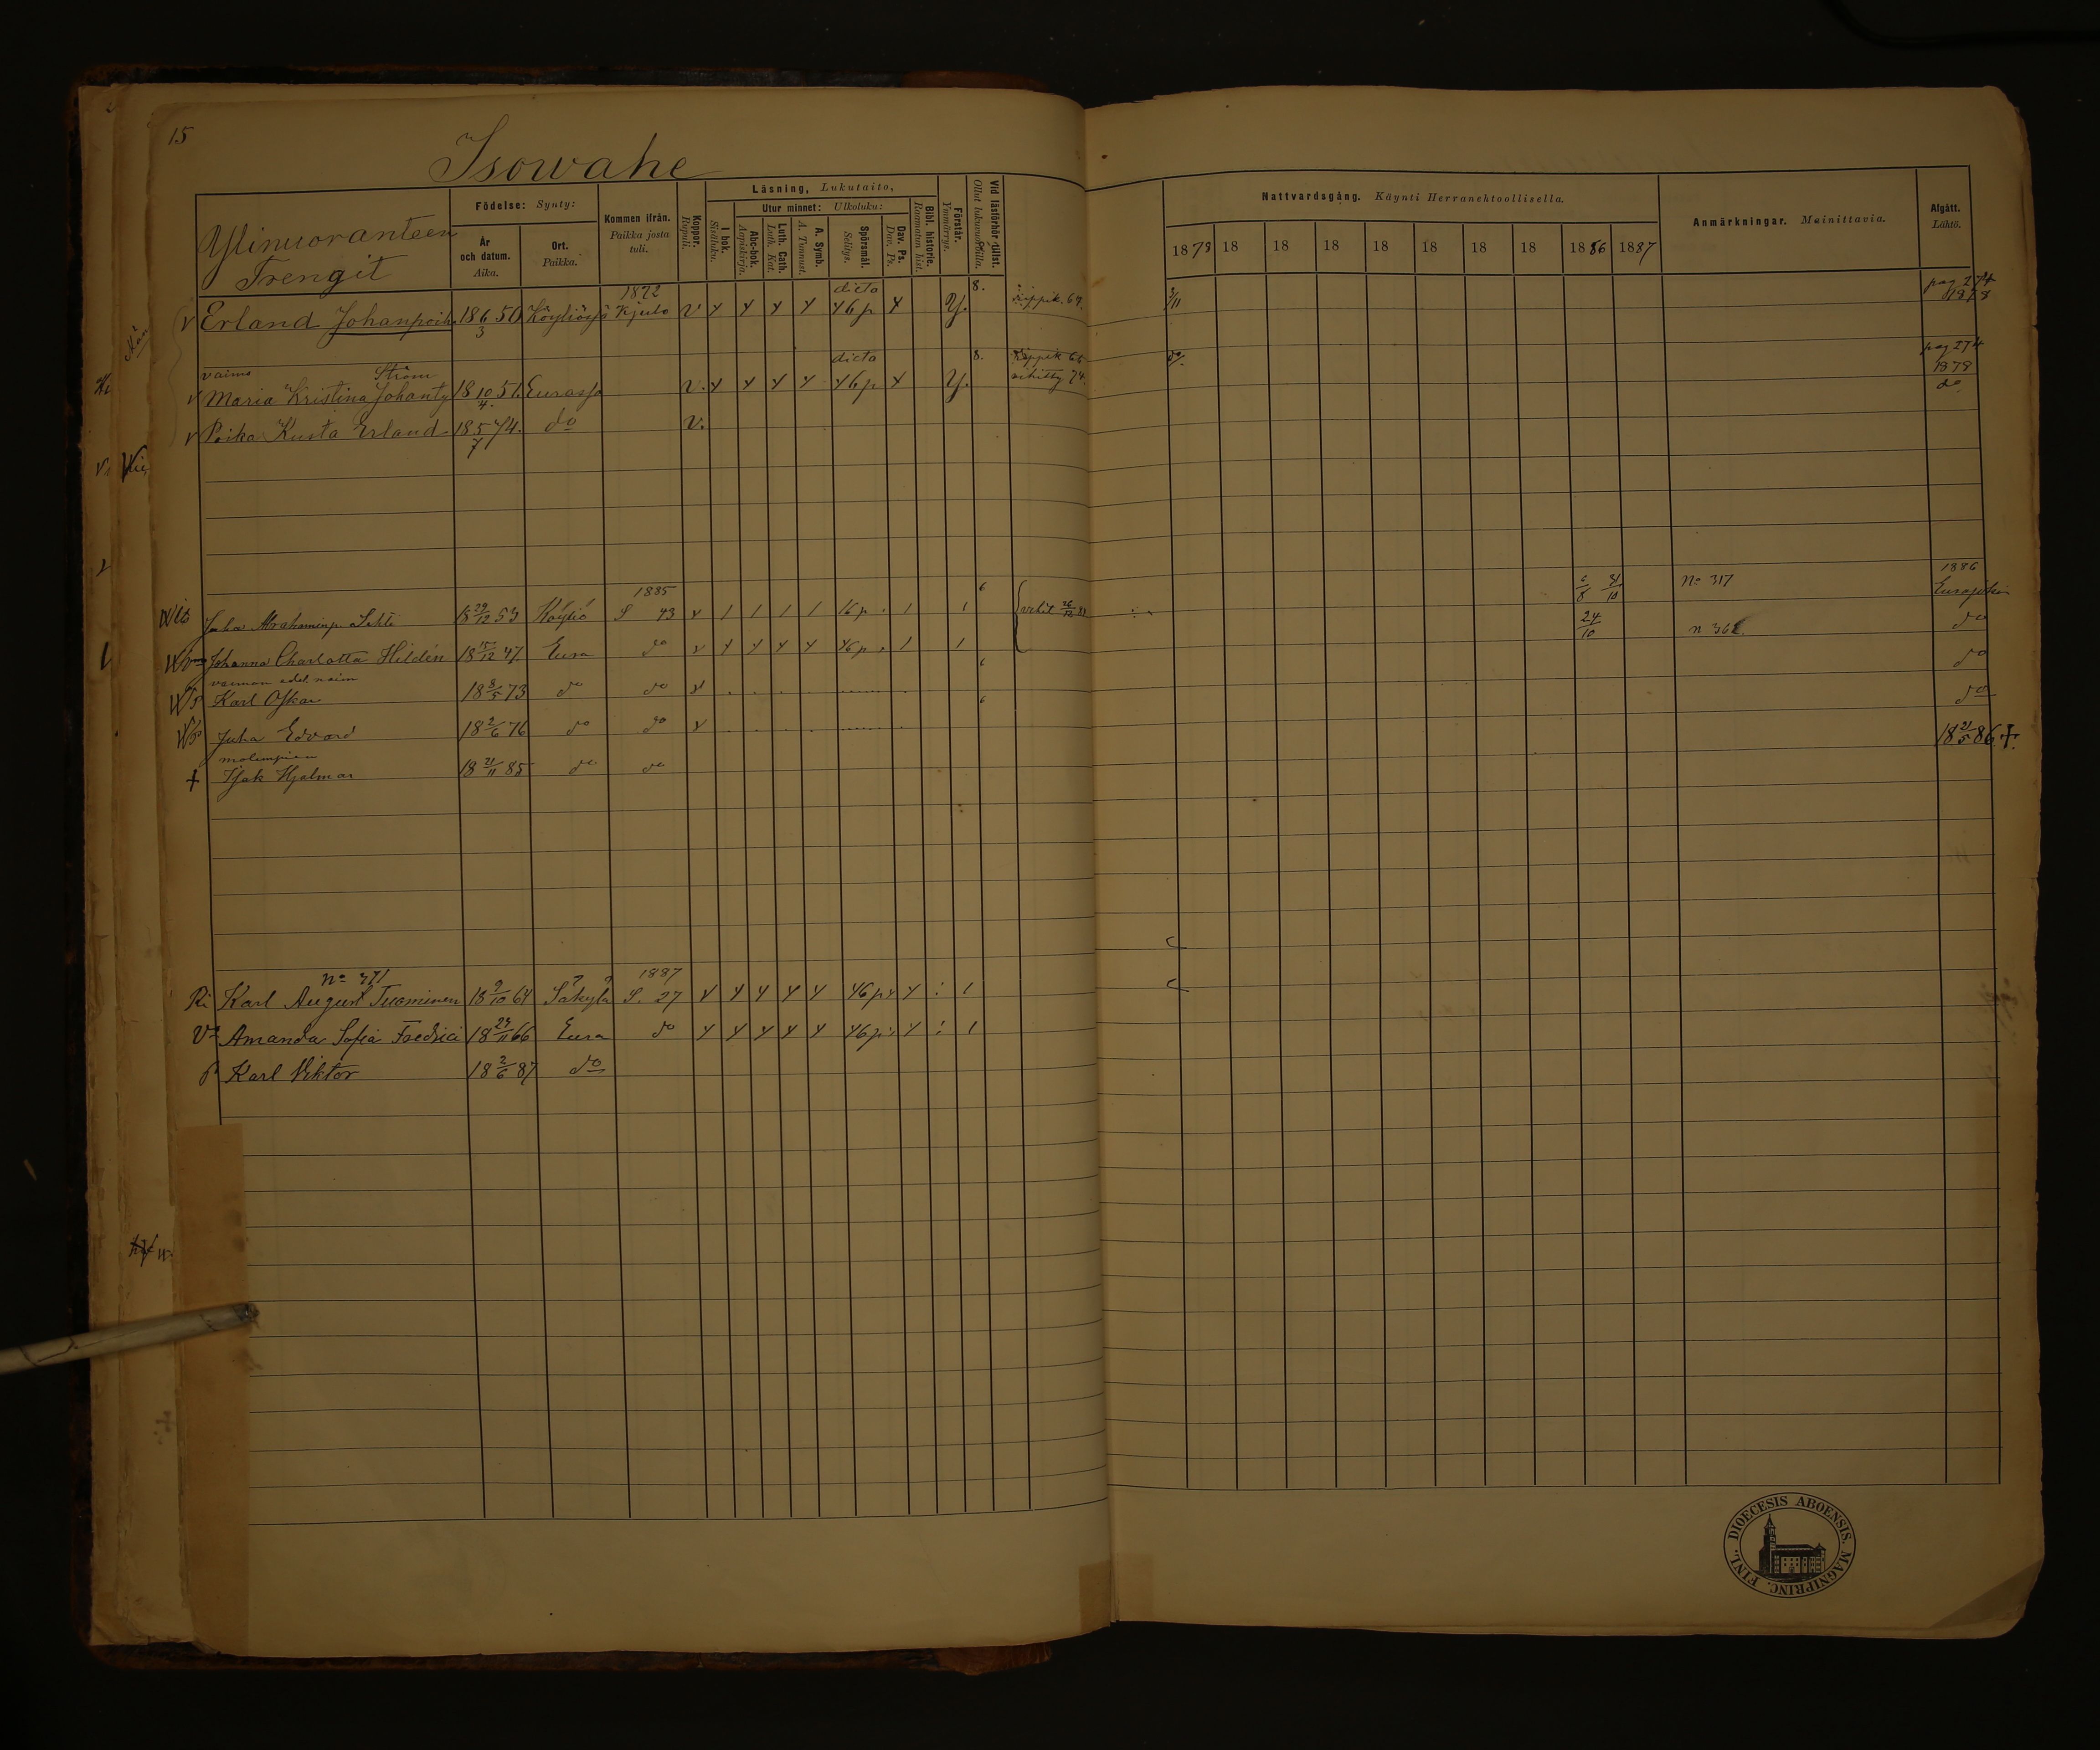 15
Isowahe
Ylinuoranteen
Trengit
Födelse: Synty:
År och datum. Aika.
Ort. Paikka.
Kommen ifrån. Paikka josta tuli.
Koppor. Rupuli.
Läsning, Lukutaito,
I bok. Sisäluku.
Utur minnet: Ulkoluku:
Abc-bok. Aapiskirja.
Luth. Cath. Luth. Kat.
A. Symb. A. Tunnust.
Spörsmål. Selitys.
Dav. Ps. Dav. Ps.
Bibl. historie. Raamatun hist.
Förstår. Ymmärrys.
Vid läsförhör tillst. Ollut lukuvuoroilla.
Nattvardsgång. Käynti Herranehtoollisella.
1878 18 18 18 18 18 18 18 1886 1887
Anmärkningar. Mainittavia.
Afgått. Lähtö.
1872 dicta 8. pag 274
v Erland Johanpoik. 18 6/3 50 Köyliössä Kjulo v y y y y 46 p y Y. 3/11 1878
vaimo Ström dicta 8. do pag 274
v Maria Kristina Johanty 18 10/4 51. Eurassa v. y y y y 46 p y Y. vihitty 74. 1878
v Poika Kusta Erland 18 5/7 74. do v. do
1885 6 1886
Juha Abrahaminp. 18 29/12 53 Köyliö S 43 v 1 1 1 1 16 p : 1 1 No 317
Johanna Charlotta Hildén 18 15/12 47. Eura do v y y y y 46 p : 1 1 24/10 n 362. do
vaimon edel. naim
Karl Oskar 18 8/5 73 do do do
Juha Edvard 18 2/6 76 do do v do
molempien
+ Isak Hjalmar 18 21/11 85 do do 18 21/5 86 +.
No 371 1887
Karl August Tuominen 18 9/10 64 Säkylä S. 27 y y y y y 46 p y : 1
Amanda Sofia Fredrici 18 23/11 66 Eura do y y y y y 46 p y : 1
p Karl Viktor 18 2/6 87 do
DIOECESIS ABOENSIS. MAGNIPRINC. FINL.